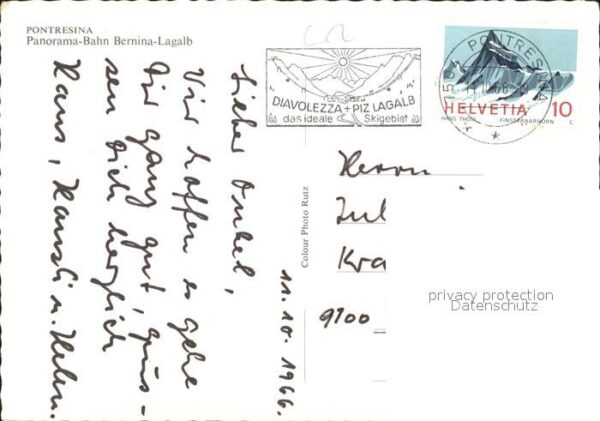 PONTRESINA
Panorama-Bahn Bernina-Lagalb
Lieber Onkel,
Wir hoffen es gehe
Dir ganz gut, grüs-
sen Dich herzlich
Hans, Hansli u. Helen.
11.10.1966.
Colour Photo Rutz
DIAVOLEZZA + PIZ LAGALB
das ideale Skigebiet
PONTRES
HELVETIA 10
HANS THÖNI FINSTERAARHORN C
Herrn
Jul
Kra
9100
privacy protection
Datenschutz